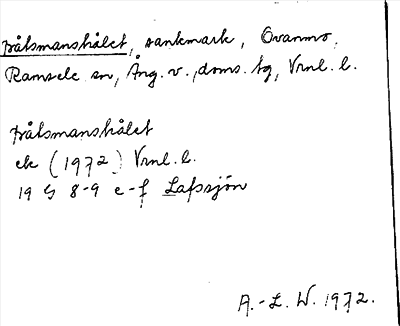 Båtsmanshålet, sankmark, Ovanmo,
Ramsele sn, Ång. v., doms. tg, Vrnl. l.
Båtsmanshålet
ek (1972) Vrnl. l.
19 G 8-9 e-f Lafssjön
A.-L. W. 1972.